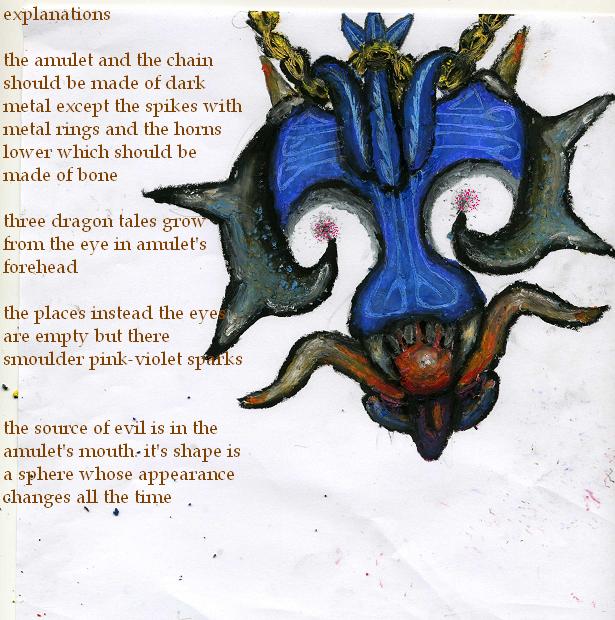 explanations
the amulet and the chain
should be made of dark
metal except the spikes with
metal rings and the horns
lower which should be
made of bone
three dragon tales grow
from the eye in amulet's
forehead
the places instead the eyes
are empty but there
smoulder pink-violet sparks
the source of evil is in the
amulet's mouth. it's shape is
a sphere whose appearance
changes all the time